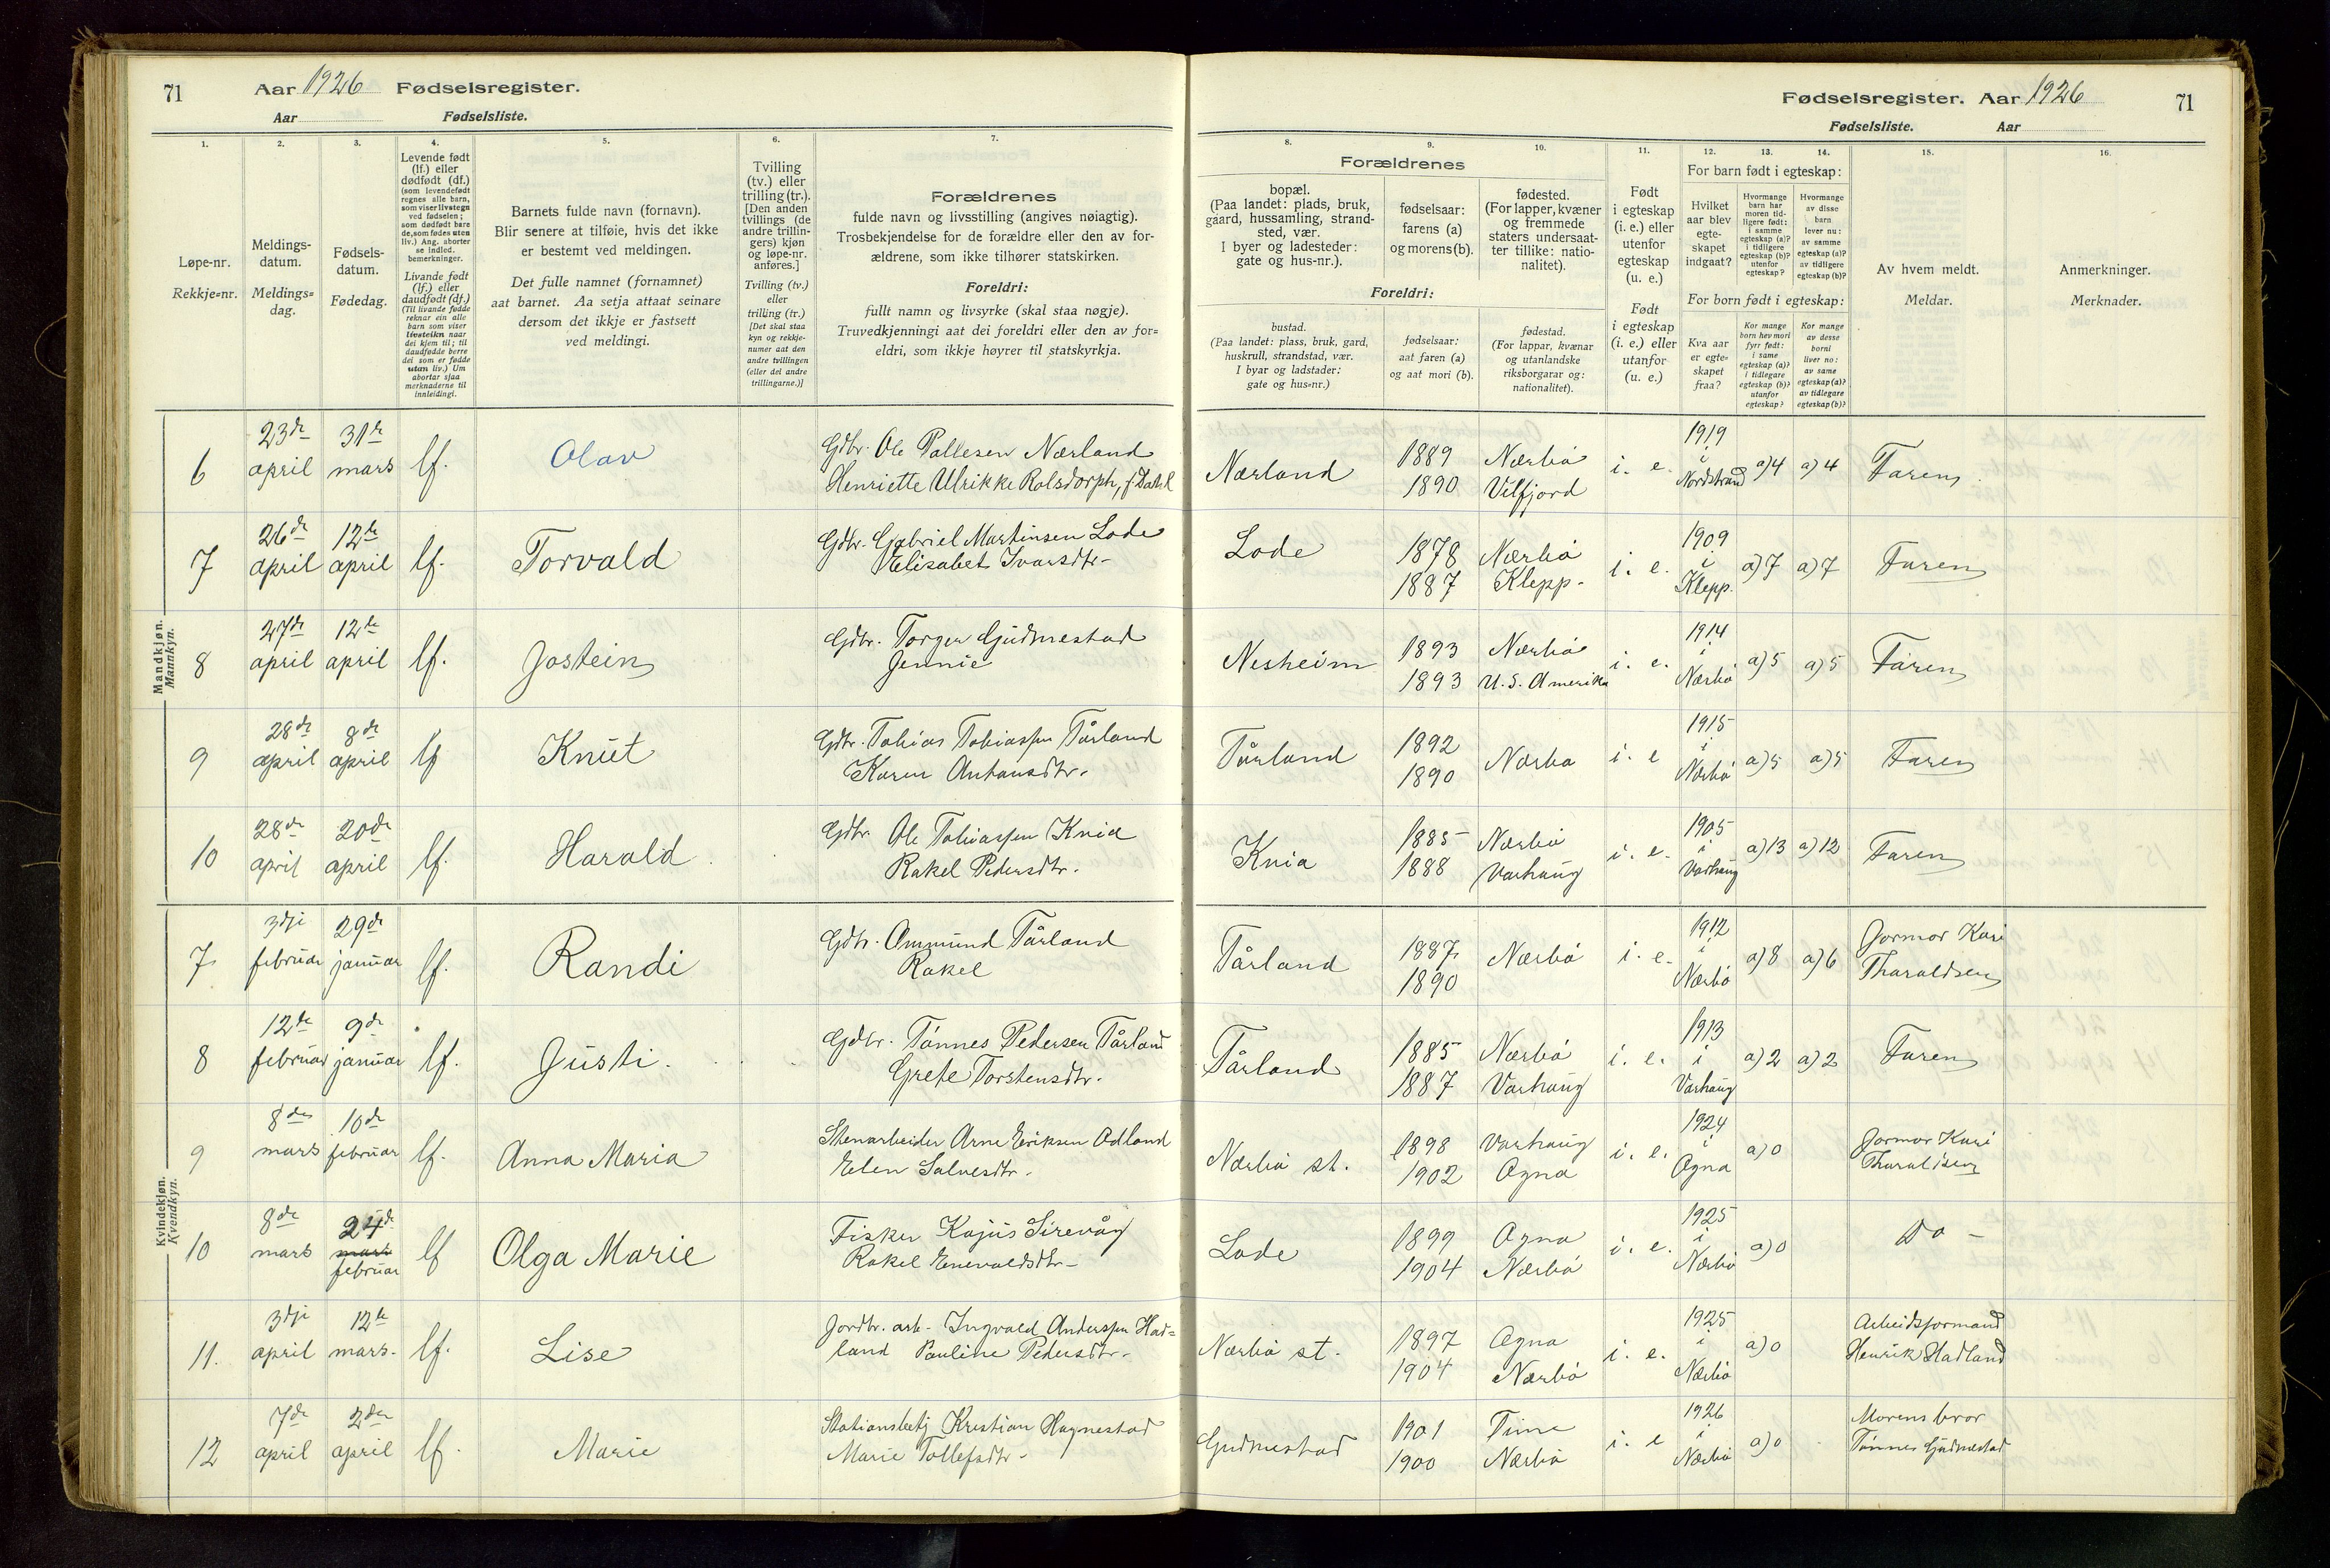 71 Aar 1926 Fødselsregister.
Aar Fødselsliste.
Fødselsregister. Aar 1926 71
Fødselsliste. Aar
1. 2. 3. 4. 5. 6. 7. 8. 9. 10. 11. 12. 13. 14. 15. 16.
Løpe-nr.
Rekkje=nr.
Meldings-
datum.
Meldings=
dag.
Fødsels-
datum.
Fødedag.
Levende født
(lf.) eller
dødfødt (df.)
(som levendefødt
regnes alle barn,
som viser livstegn
ved fødselen;
som dødfødt bare
de, som fødes uten
liv.) Ang. aborter
se indled.
bemerkninger.
Livande født
(lf.) eller
daudfødt (df.)
(Til livande fødde
reknar ein alle
barn som viser
livsteikn naar
dei kjem til; til
daudfødde berre
dei som er fødde
utan liv.) Um
abortar sjaa
merknaderne til
innleidingi.
Barnets fulde navn (fornavn).
Blir senere at tilføie, hvis det ikke
er bestemt ved meldingen.
Det fulle namnet (fornamnet)
aat barnet. Aa setja attaat seinare
dersom det ikkje er fastsett
ved meldingi.
Tvilling
(tv.) eller
trilling (tr.).
[Den anden
tvillings (de
andre trillin-
gers) kjøn
og løpe-nr.
anføres.]
Tvilling (tv.)
eller
trilling (tr.)
[Det skal staa
kyn og rekkje-
numer aat den
andre tvillingen
(eller dei andre
trillingarne.)]
Forældrenes
fulde navn og livsstilling (angives nøiagtig).
Trosbekjendelse for de forældre eller den av for-
ældrene, som ikke tilhører statskirken.
Foreldri:
fullt namn og livsyrke (skal staa nøgje).
Truvedkjenningi aat dei foreldri eller den av for=
eldri, som ikkje høyrer til statskyrkja.
Forældrenes
bopæl.
(Paa landet: plads, bruk,
gaard, hussamling, strand-
sted, vær.
I byer og ladesteder:
gate og hus-nr.).
fødselsaar:
farens (a)
og morens (b).
fødested.
(For lapper, kvæner
og fremmede
staters undersaat-
ter tillike: natio-
nalitet).
Foreldri:
bustad.
(Paa landet: plass, bruk, gard,
huskrull, strandstad, vær.
I byar og ladstader:
gate og hus=nr.)
fødselsaar:
aat faren (a)
og aat mori (b).
fødestad.
(For lappar, kvænar
og utanlandske
riksborgarar og:
nationalitet).
Født
i egteskap
(i. e.) eller
utenfor
egteskap
(u. e.)
Født
i egteskap
(i. e.) eller
utanfor
(u. e.)
For barn født i egteskap:
Hvilket
aar blev
egte-
skapet
indgaat?
Hvormange
barn har
moren tid-
ligere født:
i samme
egteskap (a)?
i tidligere
egteskap (b)?
utenfor
egteskap?
Hvormange
av disse
barn
lever nu:
av samme
egteskap (a)?
av tidligere
egteskap (b)?
For born født i egteskap:
Kva aar
er egte=
skapet
fraa?
Kor mange
born hev mori
fyrr født:
i same
egteskap (a)?
i tidlegare
egteskap (b)?
utanfor
egteskap?
Kor mange
av desse
borni
liver no:
av same
egteskap (a)?
av tidlegare
egteskap (b)?
Av hvem meldt.
Meldar.
Anmerkninger.
Merknader.
Mandkjøn.
Mannkyn.
6 23de april 31te mars lf. Olav Gdbr. Ole Pallesen Nærland
Henriette Ulrikke Rolsdorph, f. Dahl
Nærland 1889 1890 Nærbø Velfjord i. e. 1919 i Nordstrand a) 4 a) 4 Faren
7 26de april 12te april lf. Torvald Gdbr. Gabriel Martinsen Lode
Elisabet Ivarsdtr.
Lode 1878 1887 Nærbø Klepp. i. e. 1909 i Klepp. a) 7 a) 7 Faren
8 27de april 12te april lf. Jostein Gdbr. Torger Gudmestad
Jennie
Nesheim 1893 1893 Nærbø U. S. Amerika i. e. 1914 i Nærbø a) 5 a) 5 Faren
9 28de april 8de april lf Knut Gdbr. Tobias Tobiassen Tårland
Karen Antonsdtr.
Tårland 1892 1890 Nærbø i. e 1915 i Nærbø a) 5 a) 5 Faren
10 28de april 20de april lf. Harald Gdbr. Ole Tobiassen Knia
Rakel Pedersdtr.
Knia 1885 1888 Nærbø Varhaug i. e. 1905 i Varhaug a) 13 a) 12 Faren
Kvindekjøn.
Kvendkyn.
7 3dji februar 29de januar lf. Randi Gdbr. Ommund Tårland
Rakel
Tårland 1887 1890 Nærbø i. e. 1912 i Nærbø a) 8 a) 6 Jormor Kari Tharaldsen
8 12te februar 9de januar lf. Justi. Gdbr. Tønnes Pedersen Tårland
Grete Torstensdtr.
Tårland 1885 1887 Nærbø Varhaug i. e. 1913 i Varhaug a) 2 a) 2 Faren
9 8de mars 10de februar lf. Anna Maria Stenarbeider Arne Eriksen Ødland
Elen Salvesdtr.
Nærbø st. 1898 1902 Varhaug Ogna i. e. 1924 i Ogna a) 0 Jormor Kari Tharaldsen
10 8de mars 24de mars februar lf Olga Marie Fisker Kajus Sirevåg
Rakel Enevaldsdtr.
Lode 1899 1904 Ogna Nærbø i. e. 1925 i Nærbø a) 0 Do -
11. 3dji april 12te mars. lf. Lise Jordbr. arb. Ingvald Anderssen Had=
land Pauline Pedersdtr.
Nærbø st. 1897 1904 Ogna Nærbø i. e. 1925 i Nærbø a) 0 Arbeidsformand Henrik Hadland
12 7de april 2den april lf. Marie Stationsbetj Kristian Hognestad
Marie Tollefsdtr.
Gudmestad 1901 1900 Time Nærbø i. e 1926 i Nærbø a) 0 Morens bror Tønnes Gudmestad